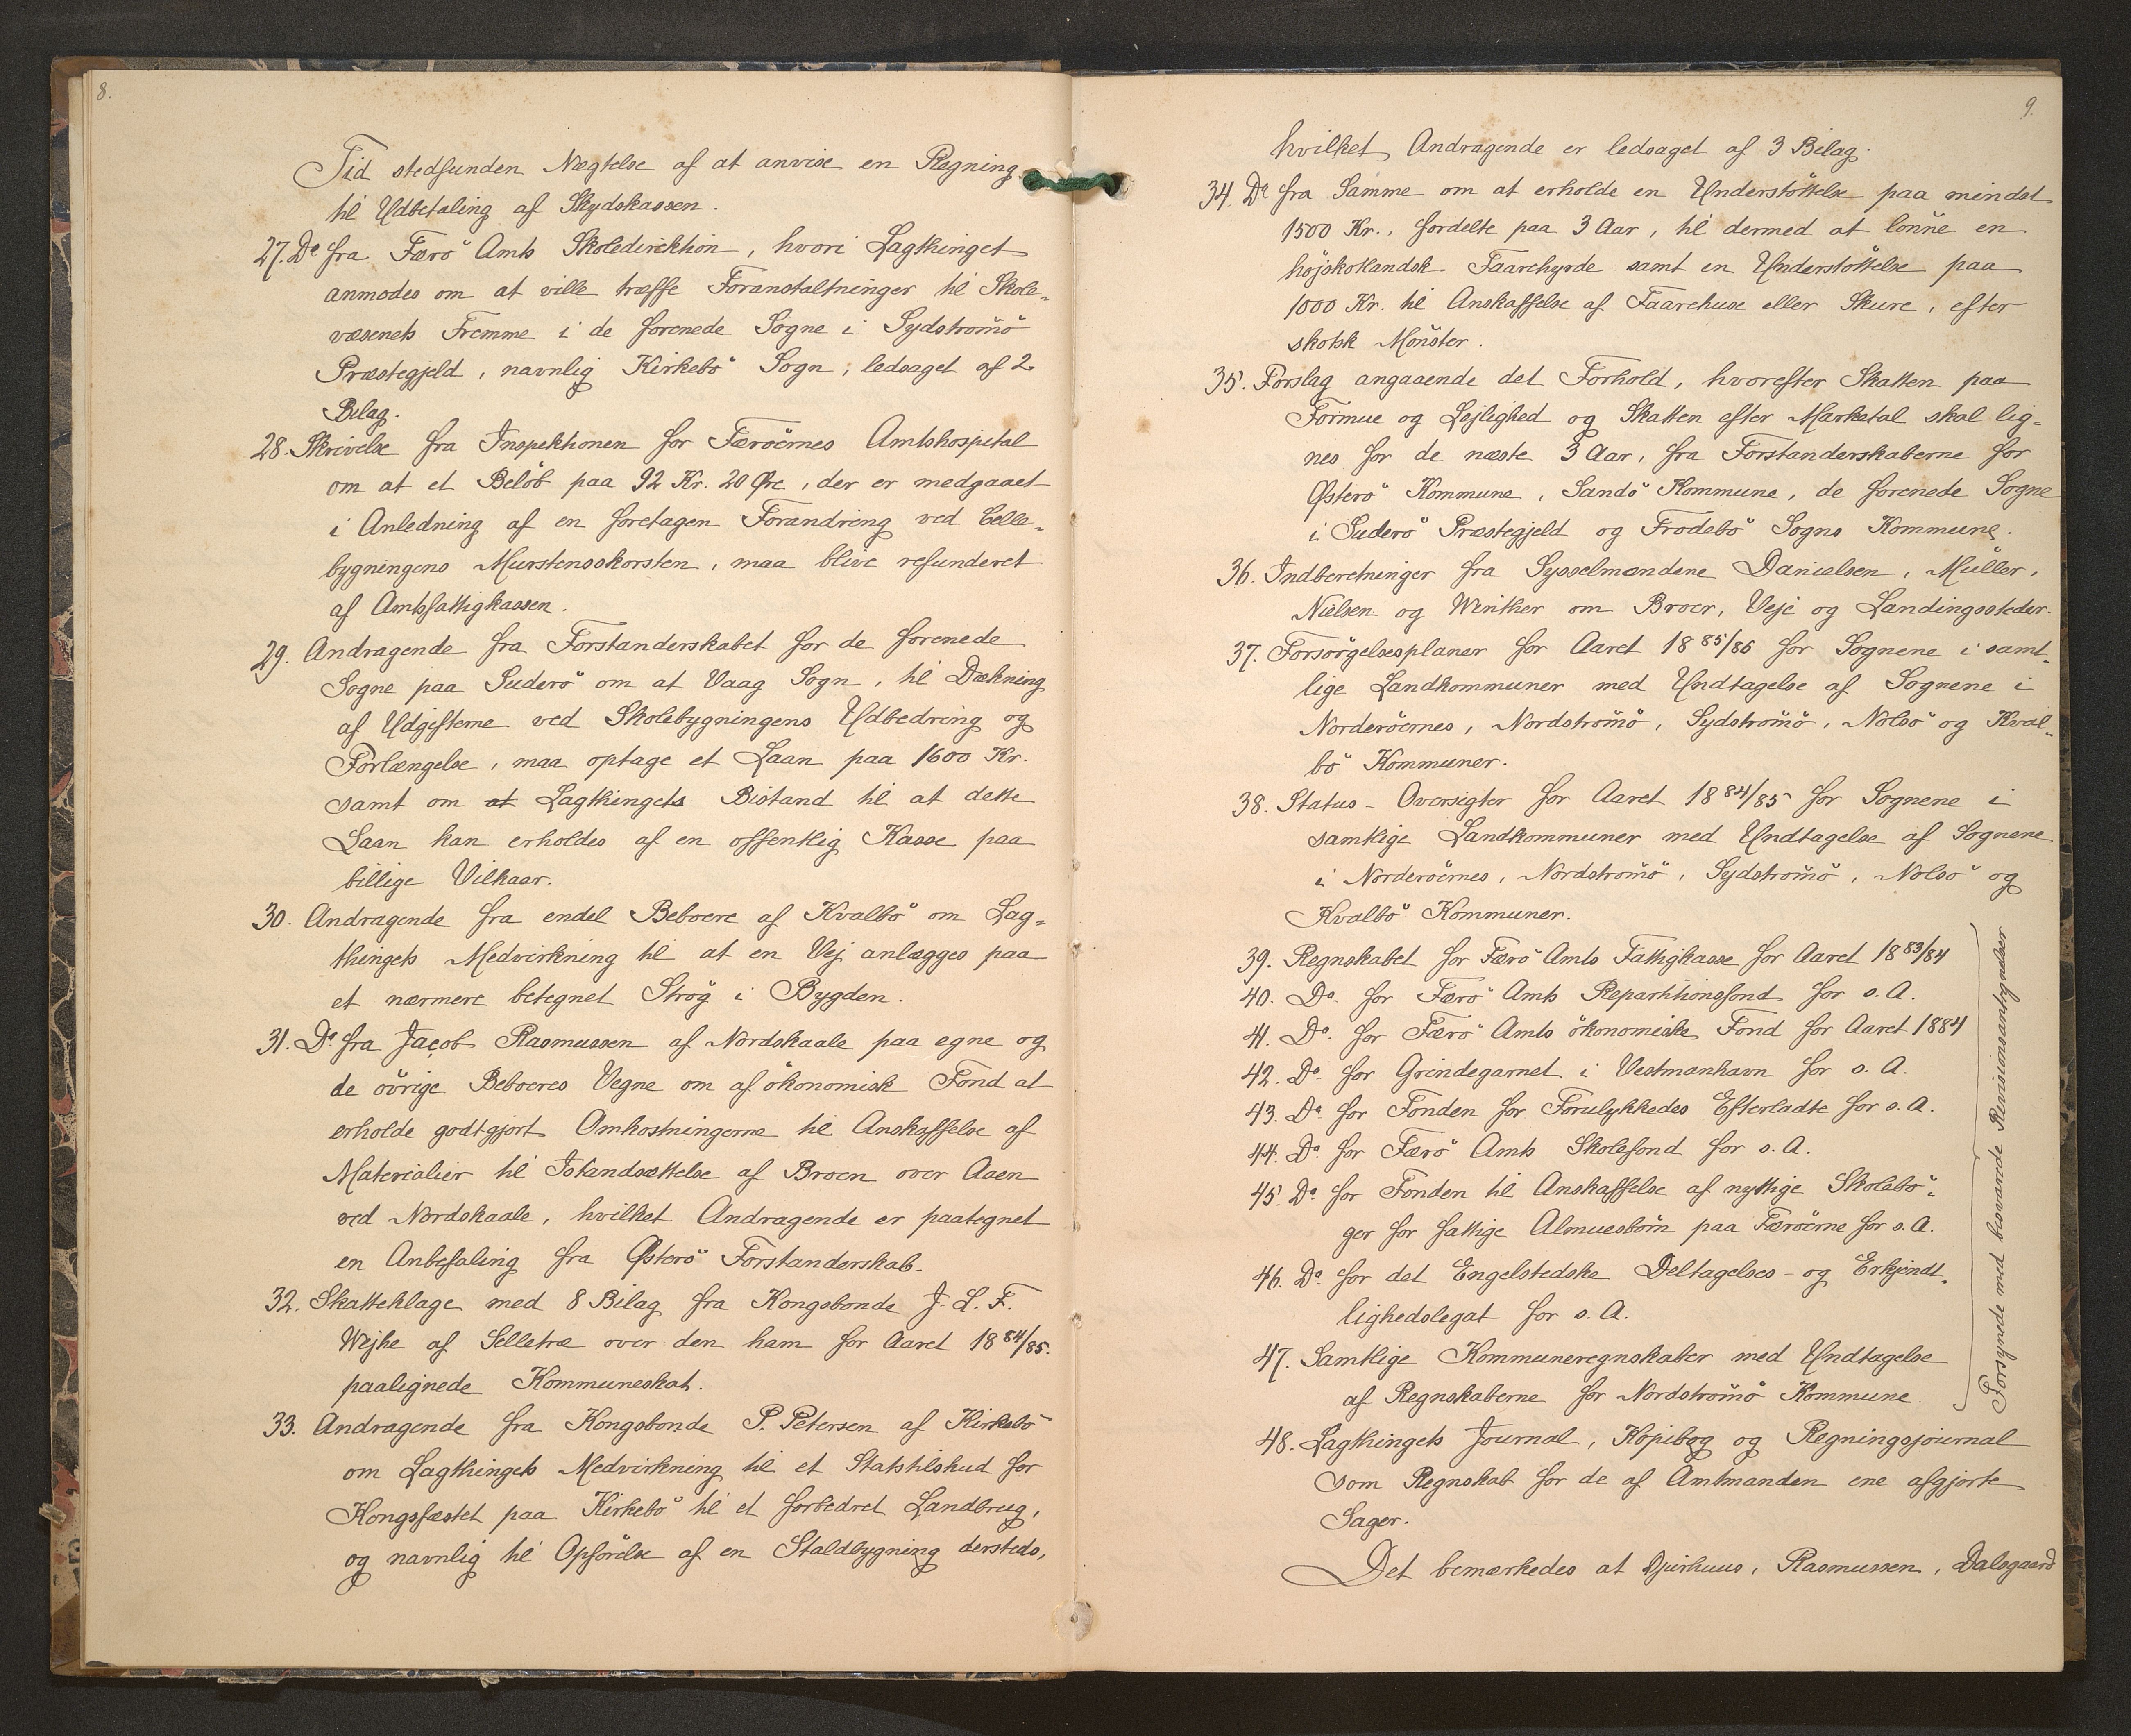 8.
Tid stedfunden Nægtelse af at anvise en Regning
til Udbetaling af Skydskassen.
27. Do fra Færö Amts Skoledirektion, hvori Lagthinget
anmodes om at ville træffe Foranstaltninger til Skole-
væsenets Fremme i de forenede Sogne i Sydströmö
Præstegjeld, navnlig Kirkebö Sogn, ledsaget af 2
Bilag.
28. Skrivelse fra Inspektionen for Færöernes Amtshospital
om at et Belöb paa 92 Kr. 20 Øre, der er medgaaet
i Anledning af en foretagen Forandring ved Celle-
bygningens Murstensskorsten, maa blive refunderet
af Amtsfattigkassen.
29. Andragende fra Forstanderskabet for de forenede
Sogne paa Suderö om at Vaag Sogn, til Dækning
af Udgifterne ved Skolebygningens Udbedring og
Forlængelse, maa optage et Laan paa 1600 Kr.
samt om at Lagthingets Bistand til at dette
Laan kan erholdes af en offentlig Kasse paa
billige Vilkaar.
30. Andragende fra endel Beboere af Kvalbö om Lag-
thingets Medvirkning til at en Vej anlægges paa
et nærmere betegnet Strög i Bygden.
31. Do fra Jacob Rasmussen af Nordskaale paa egne og
de övrige Beboeres Vegne om af ökonomisk Fond at
erholde godtgjort Omkostningerne til Anskaffelse af
Materialier til Istandsættelse af Broen over Aaen
ved Nordskaale, hvilket Andragende er paategnet
en Anbefaling fra Østerö Forstanderskab.
32. Skatteklage med 8 Bilag fra Kongsbonde J. L. F.
Wejhe af Selletræ over den ham for Aaret 1884/85.
paalignede Kommuneskat.
33. Andragende fra Kongsbonde P. Petersen af Kirkebö
om Lagthingets Medvirkning til et Statstilskud for
Kongsfæstet paa Kirkebö til et forbedret Landbrug,
og navnlig til Opförelse af en Staldbygning dersteds,
9.
hvilket Andragende er ledsaget af 3 Bilag.
34. Do fra Samme om at erholde en Understöttelse paa mindst
1500 Kr., fordelte paa 3 Aar, til dermed at lönne en
højskotlandsk Faarehyrde samt en Understöttelse paa
1000 Kr. til Anskaffelse af Faarehuse eller Skure, efter
skotsk Mönster.
35. Forslag angaaende det Forhold, hvorefter Skatten paa
Formue og Lejlighed og Skatten efter Marketal skal lig-
nes for de næste 3 Aar, fra Forstanderskaberne for
Østerö Kommune, Sandö Kommune, de forenede Sogne
i Suderö Præstegjeld og Frodebö Sogns Kommune.
36. Indberetninger fra Sysselmændene Danielsen, Müller,
Nielsen og Winther om Broer, Veje og Landingssteder.
37. Forsörgelsesplaner for Aaret 1885/86 for Sognene i samt-
lige Landkommuner med Undtagelse af Sognene i
Norderöernes, Nordströmö, Sydströmö, Nolsö og Kval-
bö Kommuner.
38. Status-Oversigter for Aaret 1884/85 for Sognene i
samtlige Landkommuner med Undtagelse af Sognene
i Norderöernes, Nordströmö, Sydströmö, Nolsö og
Kvalbö Kommuner.
39. Regnskabet for Færö Amts Fattigkasse for Aaret 1883/84
40. Do. for Færö Amts Repartitionsfond for s. A.
41. Do. for Færö Amts ökonomiske Fond for Aaret 1884
42. Do. for Grindegarnet i Vestmanhavn for s. A.
43. Do for Fonden for Forulykkedes Efterladte for s. A.
44. Do. for Færö Amts Skolefond for s. A.
45. Do. for Fonden til Anskaffelse af nyttige Skolebö-
ger for fattige Almuesbörn paa Færöerne for s. A.
46. Do. for det Engelstedske Deltagelses- og Erkjendt-
lighedslegat for s. A.
47. Samtlige Kommuneregnskaber med Undtagelse
af Regnskaberne for Nordströmö Kommune.
Forsynede med besvarede Revisionsantegnelser
48. Lagthingets Journal, Kopibog og Regningsjournal
som Regnskab for de af Amtmanden ene afgjorte
Sager.
Det bemærkedes at Djurhuus, Rasmussen, Dalsgaard